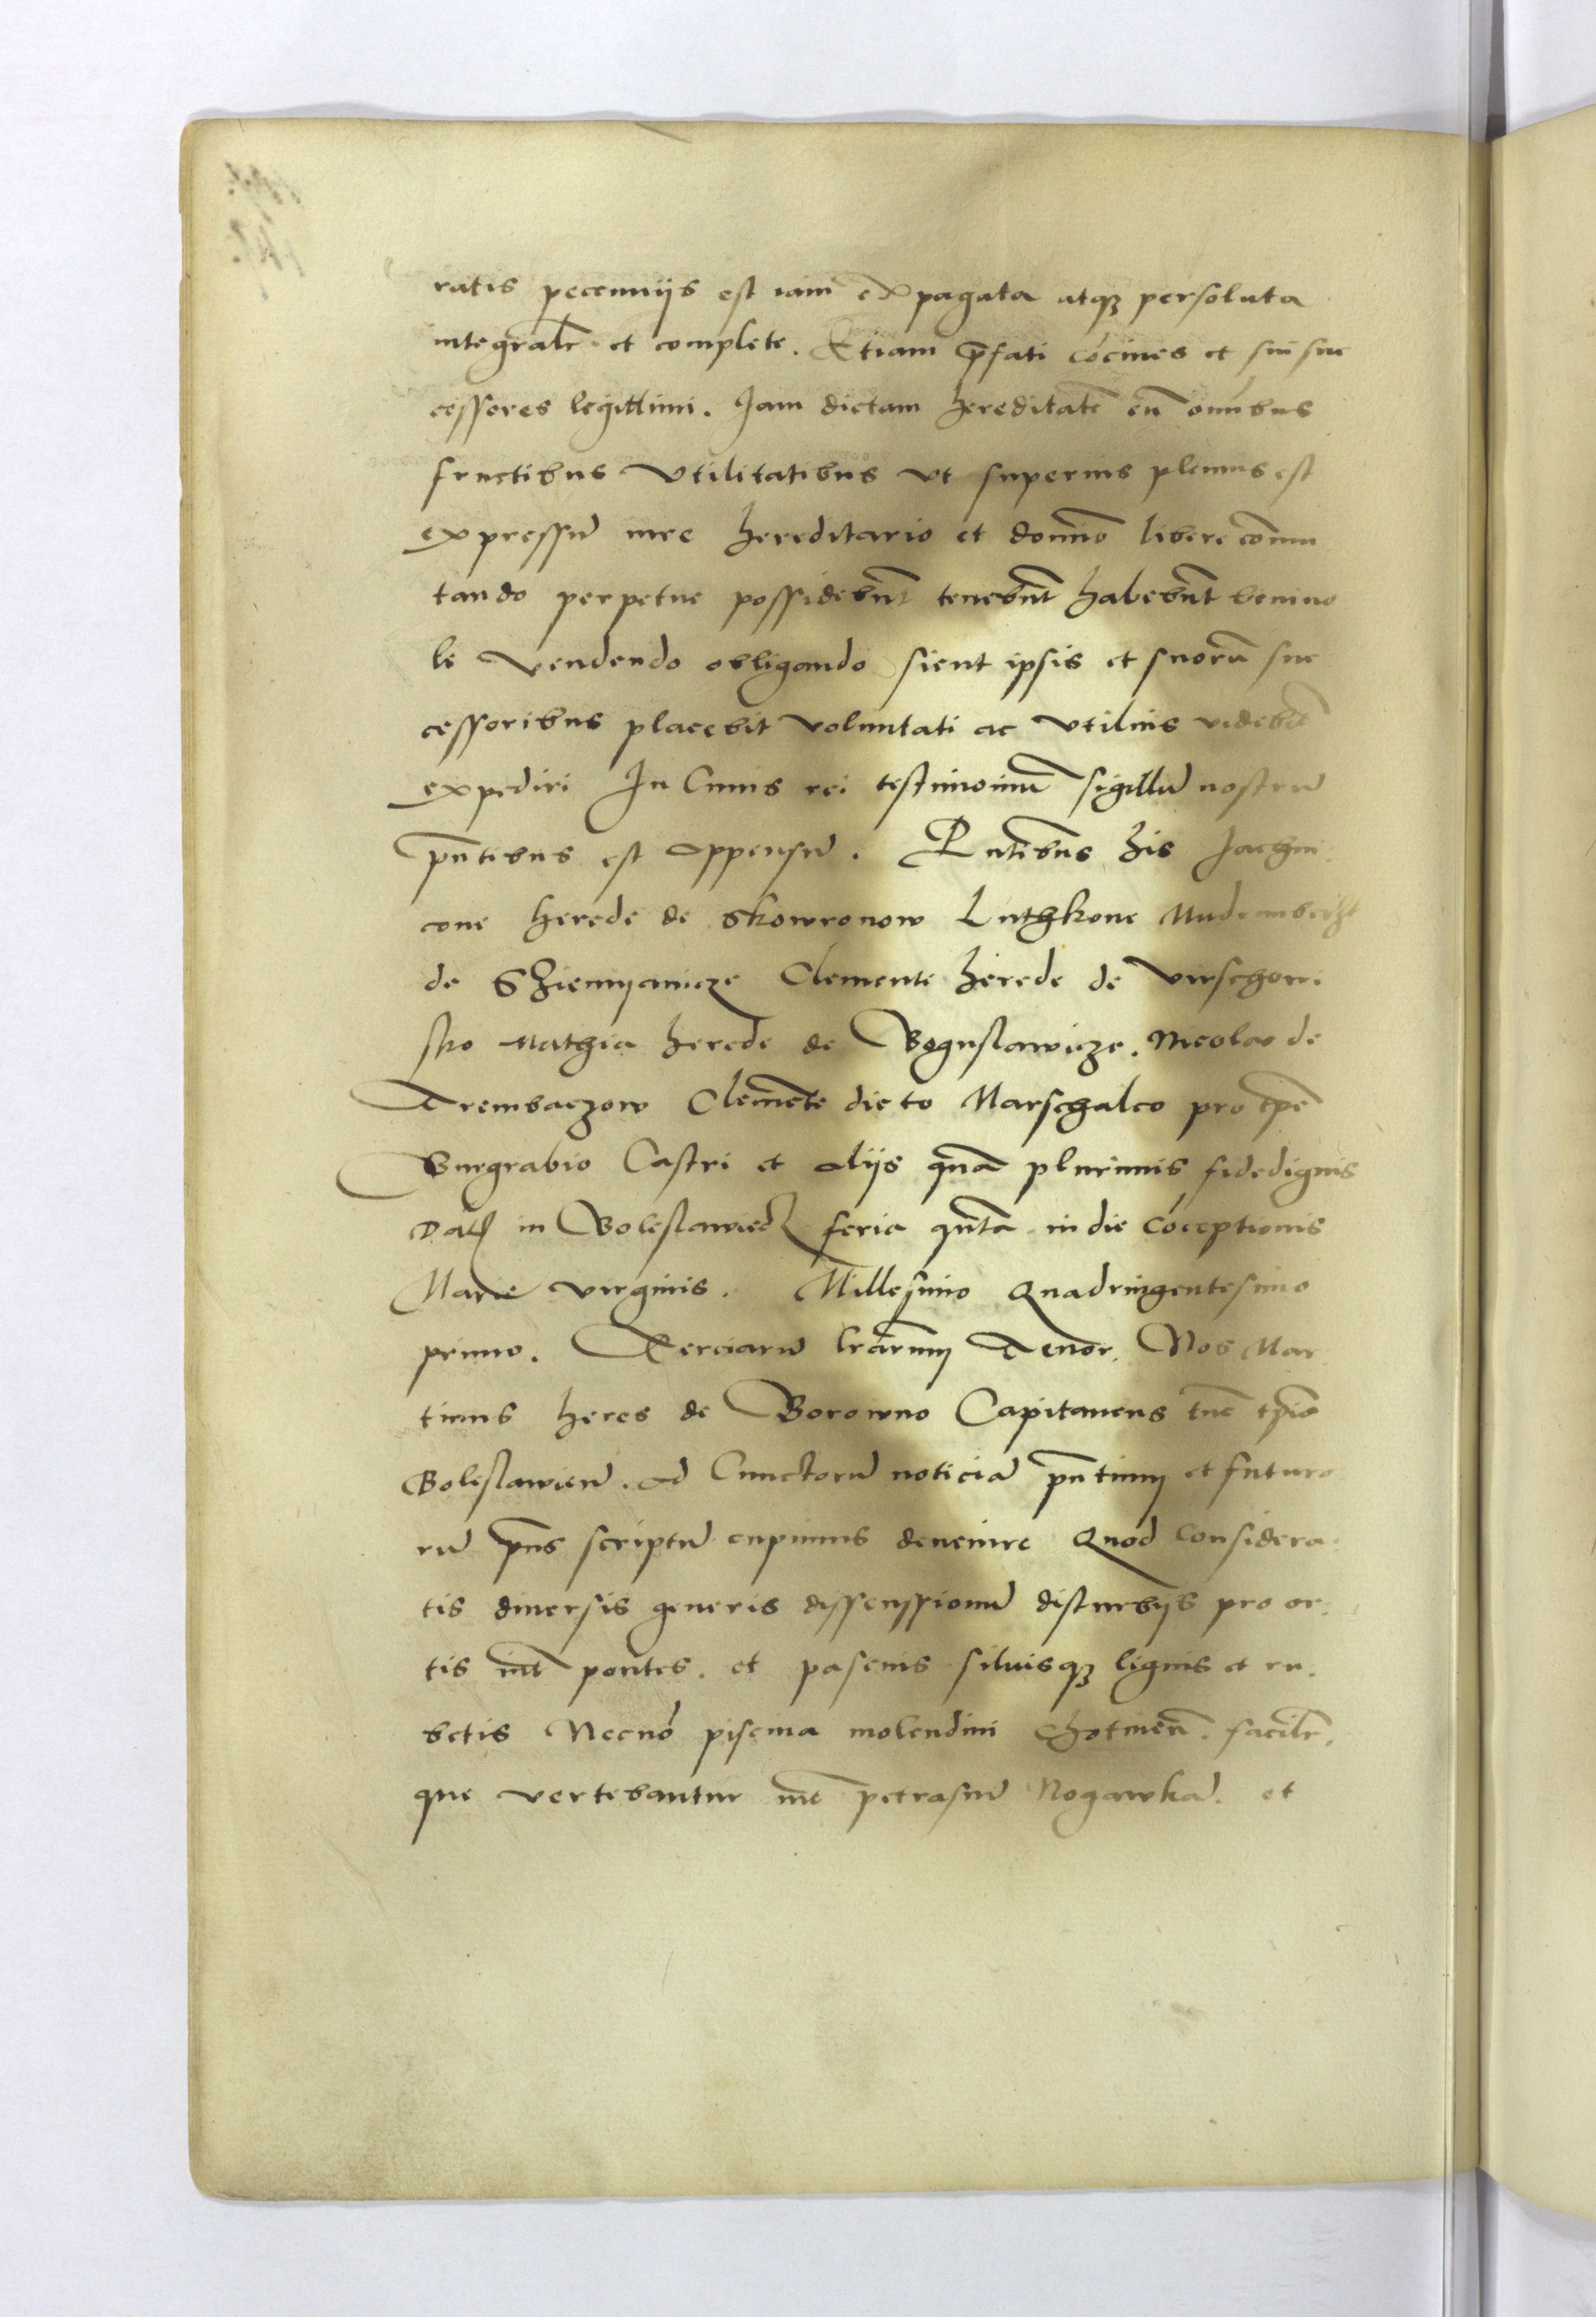 ratis pecunniis est iam expagata atqꝫ persoluta
integralr̄ et complete. Etiam p̄fati cōciues et sui suc
cessores legittimi. Iam dictam hereditatē cū om̄ibus
fructibus vtilitatibus vt superius plenius est
expressū iure hereditario et domīo libere cōmu
tando perpetue possidebūt tenebūt habebūt beniuo
le vendendo obligando sicut ipsis et suorū suc
cessoribus placebit voluntati ac vtilius videbit̄
expediri In Cuius rei testimoniū sigillū nostrū
pn̄tibus est appensū. Pn̄tibus his Jachni
cone herede de Skowronow Luthkone
de Clemente herede de Wirschowi
sko Mathia herede de Boguslawicze. Nicolao de
Trembaczow Clemēte dicto Marschalco pro tp̄e
Burgrabio Castri et alijs quā plurimis fidedignis
Dat̄ in Boleslawiecz feria qn̄ta in die cōceptionis
Marie virginis. Millesimo Quadringentesimo
primo. Terciarū lr̄arum Tenor. Nos Mar
tinus heres de Borowno Capitaneus tūc tp̄is
Boleslawień. Ad Cunctorū noticiā pn̄tium et futuro
rū pn̄s scriptū cupimus deuenire Quod considera
tis diuersis generis dissenssionū disturbijs pro or
tis int̄ pontes. et pascuis siluisqꝫ lignis et ru
betis Necnō piscina molendini Chotineń. facilr̄
que vertebantur int̄ petrasiū Nogawkā. et